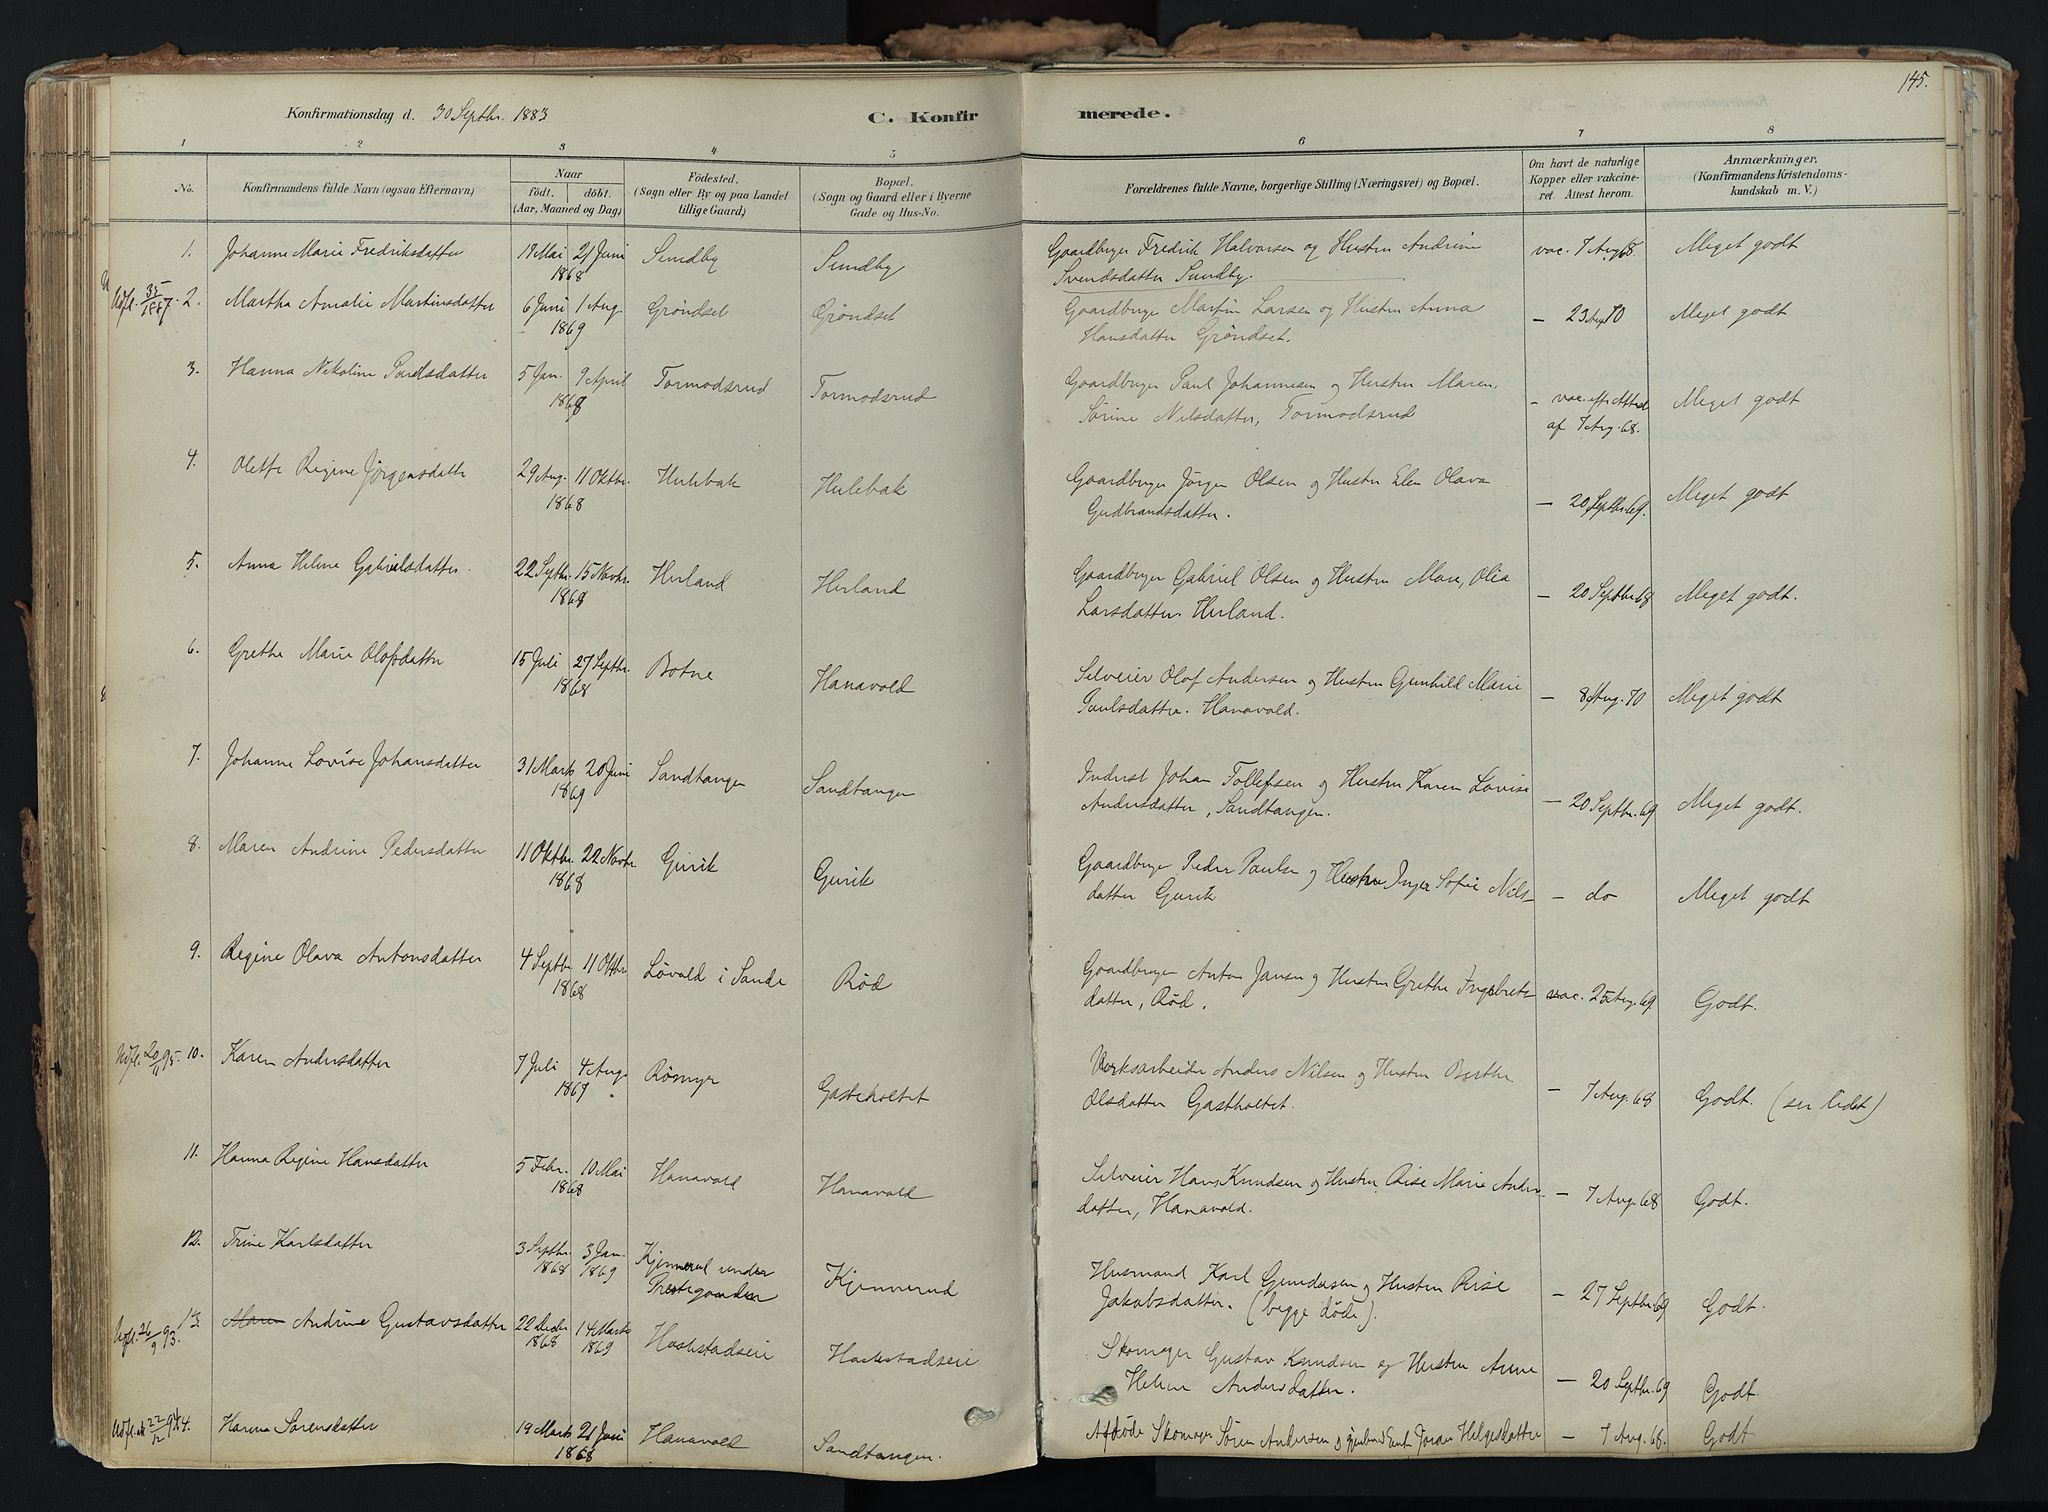 145.
Konfirmationsdag d. 30 Septbr. 1883
C. Konfirmerede.
1 2 3 4 5 6 7 8
No.
Konfirmandens fulde Navn (ogsaa Efternavn)
Naar
födt. döbt.
(Aar, Maaned og Dag)
Födested.
(Sogn eller By og paa Landet
tillige Gaard)
Bopæl.
(Sogn og Gaard eller i Byerne
Gade og Hus-No.
Forældrenes fulde Navne, borgerlige Stilling (Næringsvei) og Bopæl.
Om havt de naturlige
Kopper eller vakcine-
ret. Attest herom.
Anmærkninger.
(Konfirmandens Kristendoms-
kundskab m. V.)
1. Johanne Marie Fredriksdatter 19 Mai 21 Juni 1868 Sundby Sundby Gaardbruger Fredrik Halvorsen og Hustru Andrine vac. 7 Aug 68. Meget godt
Svendsdatter Sundby.
Udfl. 2. Martha Amalie Martinsdatter 6 Juni 1 Aug. 1869 Gröndset Gröndset Gaardbruger Martin Larsen og Hustru Anna — 23 Aug 70 Meget godt
Hansdatter Gröndset.
3. Hanna Nikoline Paulsdatter 5 Jan. 9 April 1868 Tormodsrud Tormodsrud Gaardbruger Paul Johannesen og Hustru Maren — vac. eft. Attest Meget godt
Sörine Nilsdatter, Tormodsrud af 7 Aug. 68.
4. Olette Regine Jörgensdattr 29 Aug. 11 Oktbr. 1868 Hulebak Hulebak Gaardbruger Jörgen Olsen og Hustru Elen Olava — 20 Septbr. 69. Meget godt
Gudbrandsdatter.
5. Anna Helene Gabrielsdatter. 22 Septbr. 15 Novbr. 1868 Herland Herland Gaardbruger Gabriel Olsen og Hustru Mare, Olia — 20 Septbr 68 Meget godt.
Larsdatter Herland.
6. Grethe Marie Olofsdatter 15 Juli 27 Septbr. 1868 Botne Hanavold Selveier Olof Andersen og Hustru Gunhild Marie — 8 Aug. 70 Meget godt
Paulsdatter. Hanavold.
7. Johanne Lovise Johansdatter 31 Marts 20 Juni 1869 Sandtangen Sandtangen Inderst Johan Tollefsen og Hustru Karen Lovise — 20 Septbr. 69 Meget godt.
Andersdatter, Sandtangen.
8. Maren Andrine Pedersdatter 11 Oktbr. 22 Novbr. 1868 Gurik Gurik Gaardbruger Peder Paulsen og Hustru Inger Sofie Nils- — do Meget godt
datter Gurik
9. Regine Olava Antonsdatter 4 Septbr. 11 Oktbr 1868 Lövald i Sande Röd Gaardbruger Anton Jansen og Hustru Grethe Ingebrets- vac. 25 Aug. 69 Godt.
datter, Röd.
Udfl. 20/11 95. 10. Karen Andersdatter 7 Juli 4 Aug. 1867 Rösmyr Gasteholtet Værksarbeider Anders Nilsen og Hustru Berthe — 7 Aug. 68 Godt. (ser lidet)
Olsdatter Gastholtet.
11. Hanna Regine Hansdatter 5 Febr. 10 Mai 1868 Hanavold Hanavold Selveier Hans Knudsen og Hustru Rise Marie Anders- — 7 Aug. 68 Godt.
datter, Hanavold.
12. Trine Karlsdatter 3 Septbr. 1868 3 Jan. 1869 Kjennerud under Præstegaarden Kjennerud Husmand Karl Gundersen og Hustru Rise — 27 Septbr. 69 Godt.
Jakobsdatter. (begge döde).
Udfl. 26/9 93. 13. Maren Andrine Gustavsdatter 22 Decbr 1868 14 Marts 1869 Haslestadseie Haslestadseie Skomager Gustav Knudsen og Hustru Anne — 20 Septbr. 69 Godt.
Helene Andersdatter.
14. Hanna Sörensdatter 19 Marts 21 Juni 1868 Hanavold Sandtangen. Afdöde Skomager Sören Andersen og Joran Helgesdatter — 7 Aug. 68. Godt.